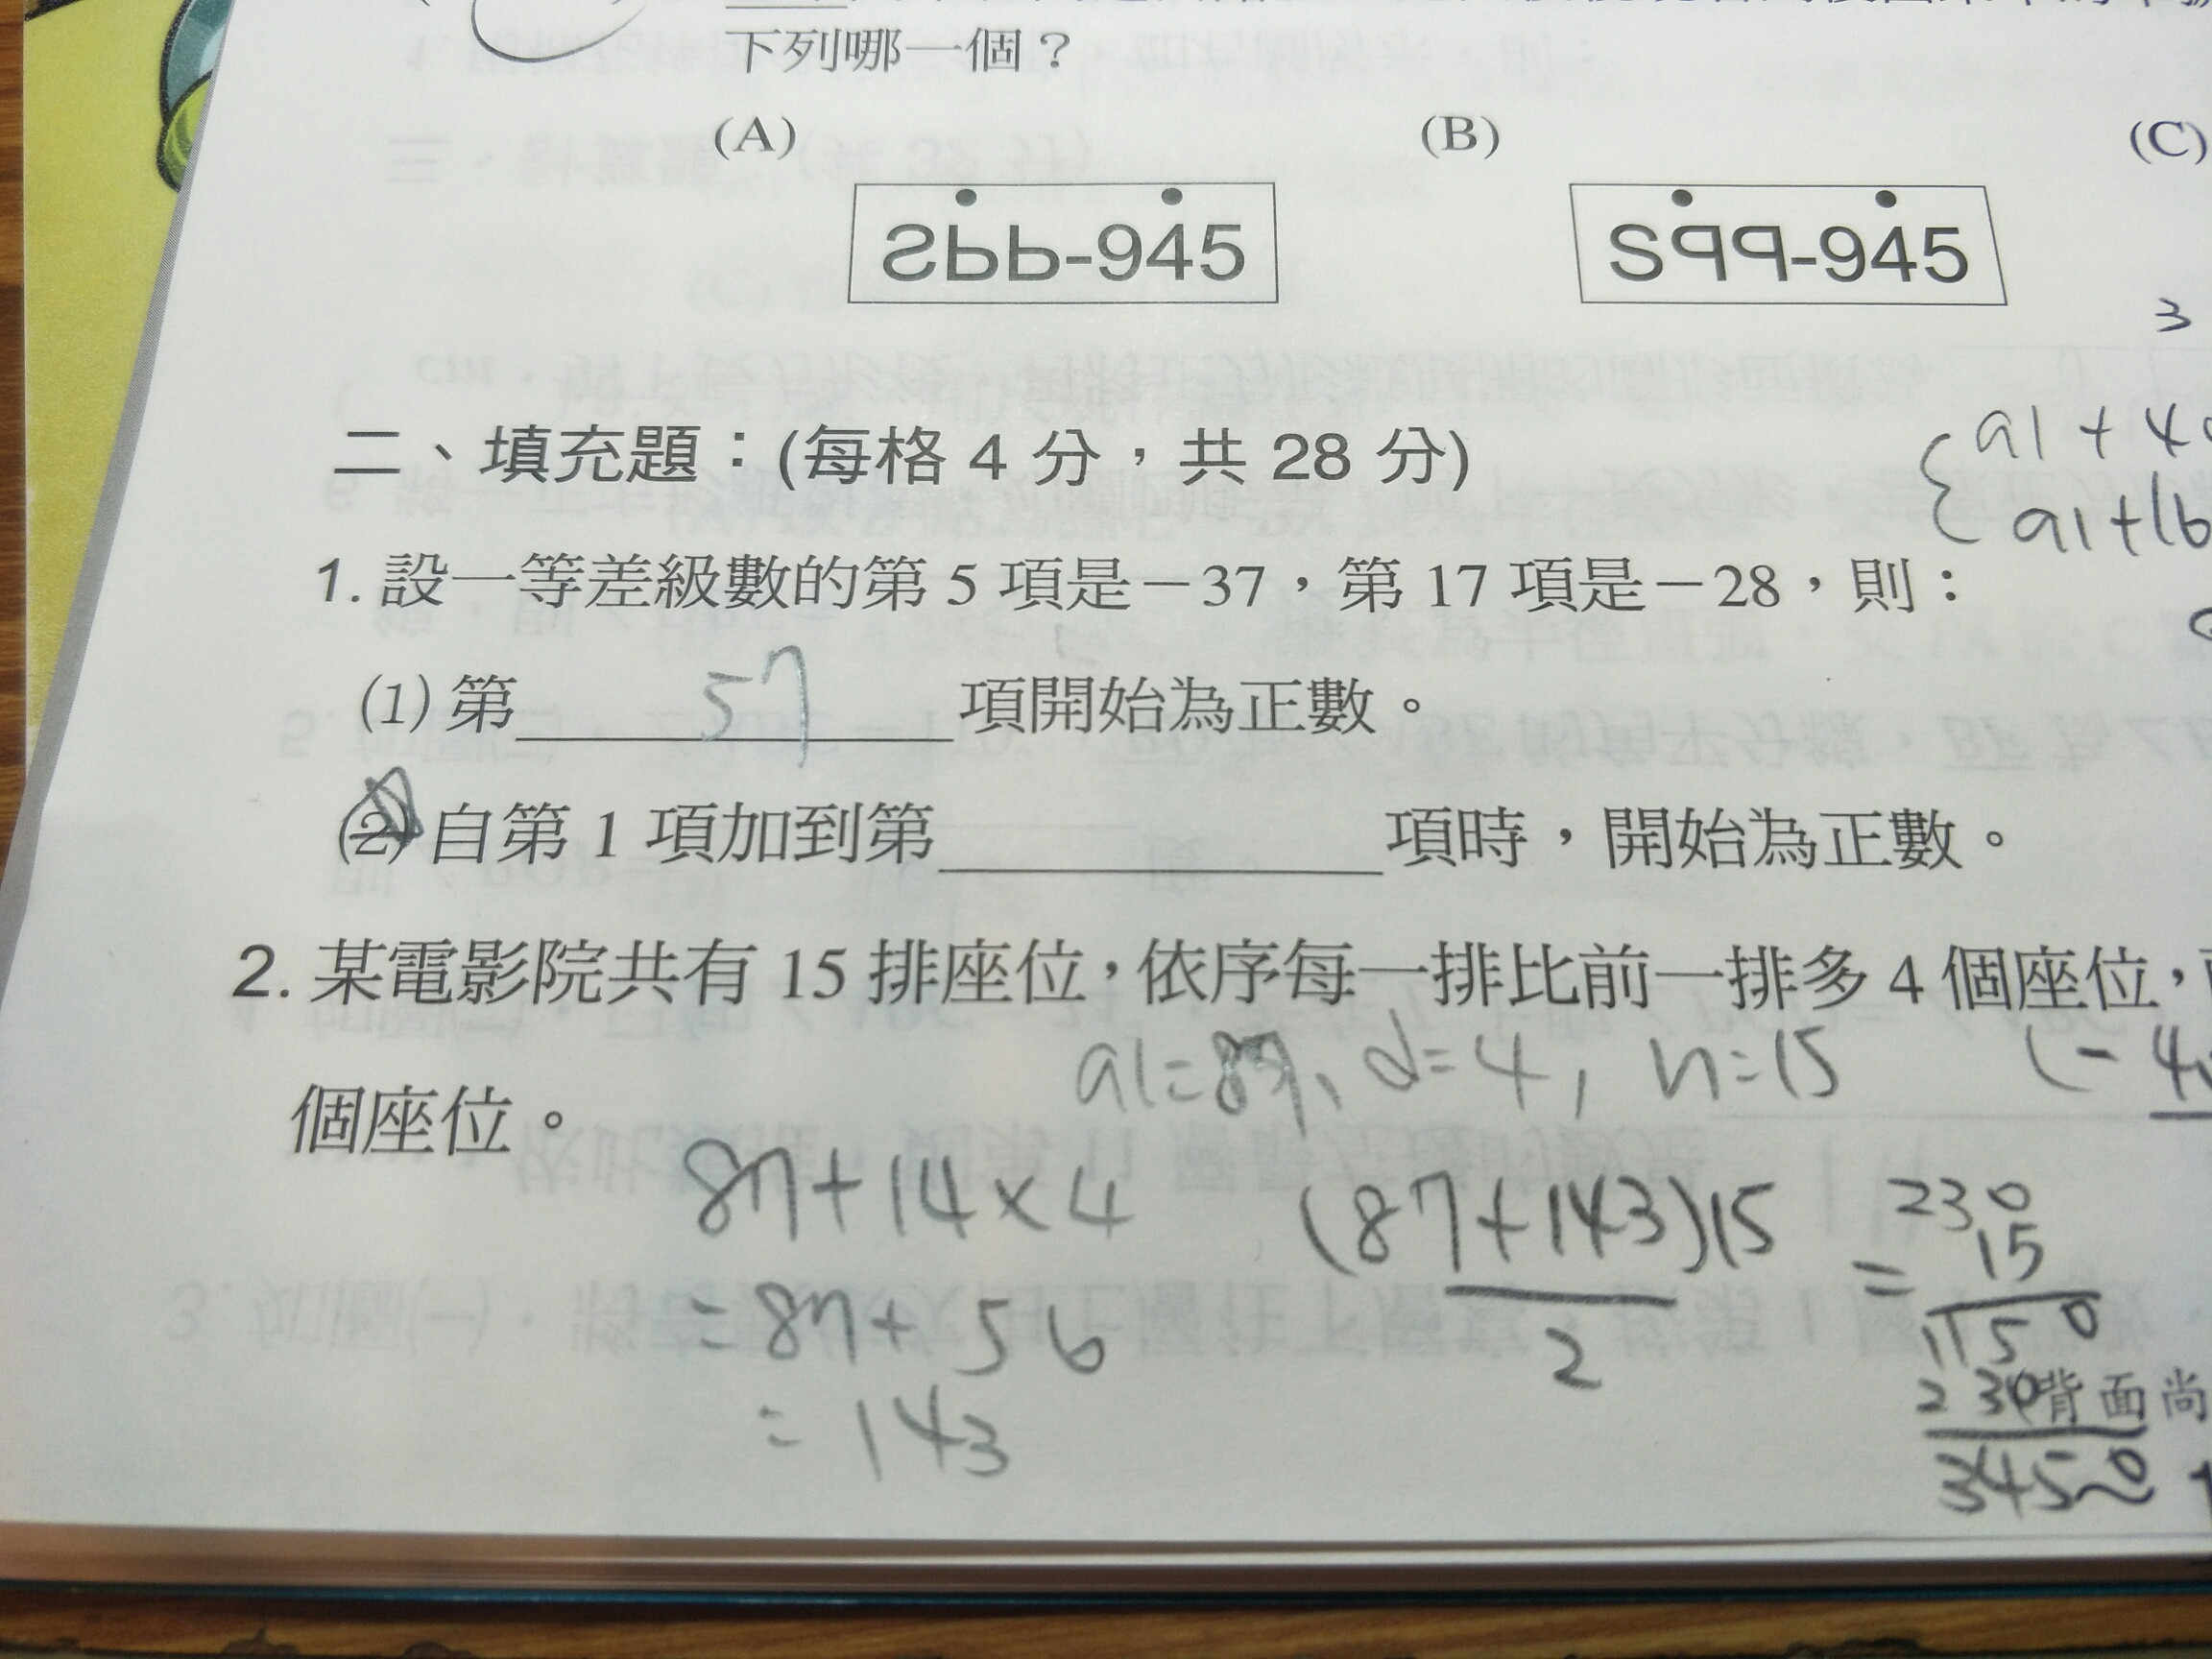 下列哪一個？
(A) (B) (C)
SPP-945 SPP-945
3
二、填充題：(每格 4 分，共 28 分)
a1+4
a1+16
1. 設一等差級數的第 5 項是－37，第 17 項是－28，則：
(1) 第 57 項開始為正數。
(2) 自第 1 項加到第 項時，開始為正數。
2. 某電影院共有 15 排座位，依序每一排比前一排多 4 個座位，
a1=87、d=4, n=15 (-4
個座位。
87+14×4 (87+143)15 = 230
=87+56 2 15
1150
=143 230 背面尚
3450